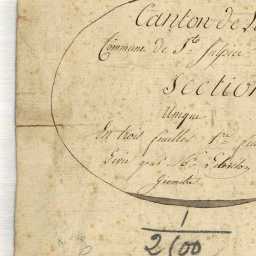 Canton de
Commune de Ste Sulpice
Section
Unique
En trois feuilles 1re
Levé par Mr
Géomètre
1
2500